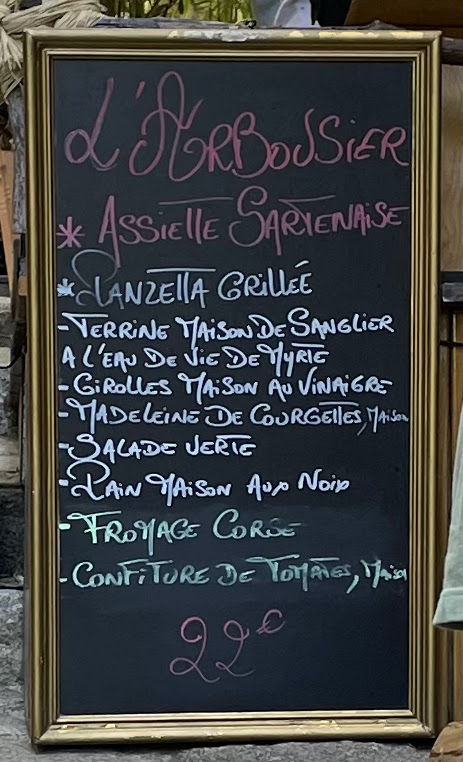 L'ARBOUSIER
* ASSIETTE SARTENAISE
* PANZETTA GRILLÉE
- TERRINE MAISON DE SANGLIER
A L'EAU DE VIE DE MYRTE
- GIROLLES MAISON AU VINAIGRE
- MADELEINE DE COURGETTES, MAISON
- SALADE VERTE
- PAIN MAISON AUX NOIX
- FROMAGE CORSE
- CONFITURE DE TOMATES, MAISON
22€